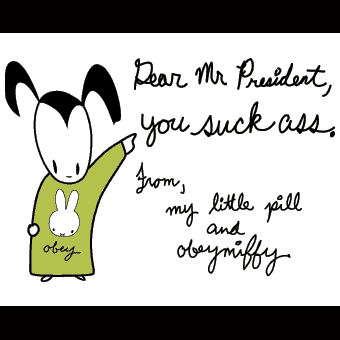 Dear Mr President,
you suck ass.
From,
my little pill
and
obeymiffy.
obey